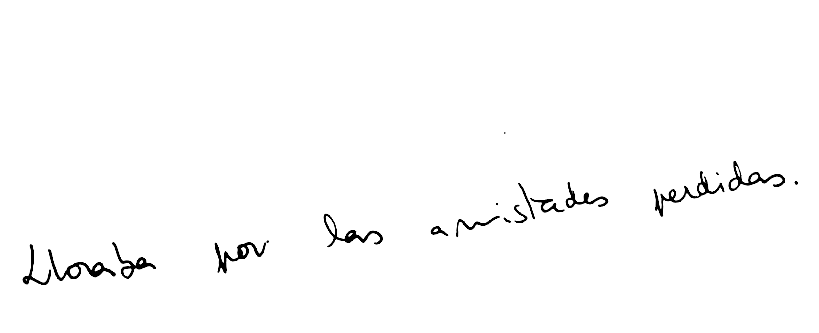 Lloraba por las amistades perdidas.